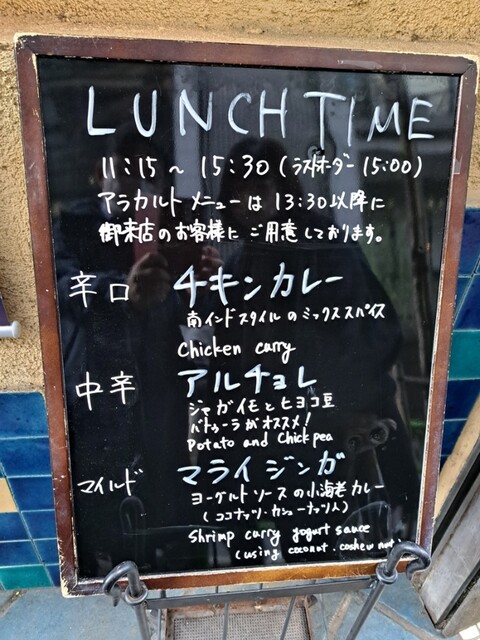 LUNCH TIME
11:15～15:30(ラストオーダー15:00)
アラカルトメニューは13:30以降に
御来店のお客様にご用意しております。
辛口 チキンカレー
南インドスタイルのミックススパイス
Chicken curry
中辛 アルチョレ
ジャガイモとヒヨコ豆
バトゥーラがオススメ!
Potato and Chickpea
マイルド マライジンガ
ヨーグルトソースの小海老カレー
(ココナッツ・カシューナッツ入)
Shrimp curry yogurt sauce
(using coconut. coshew nut)